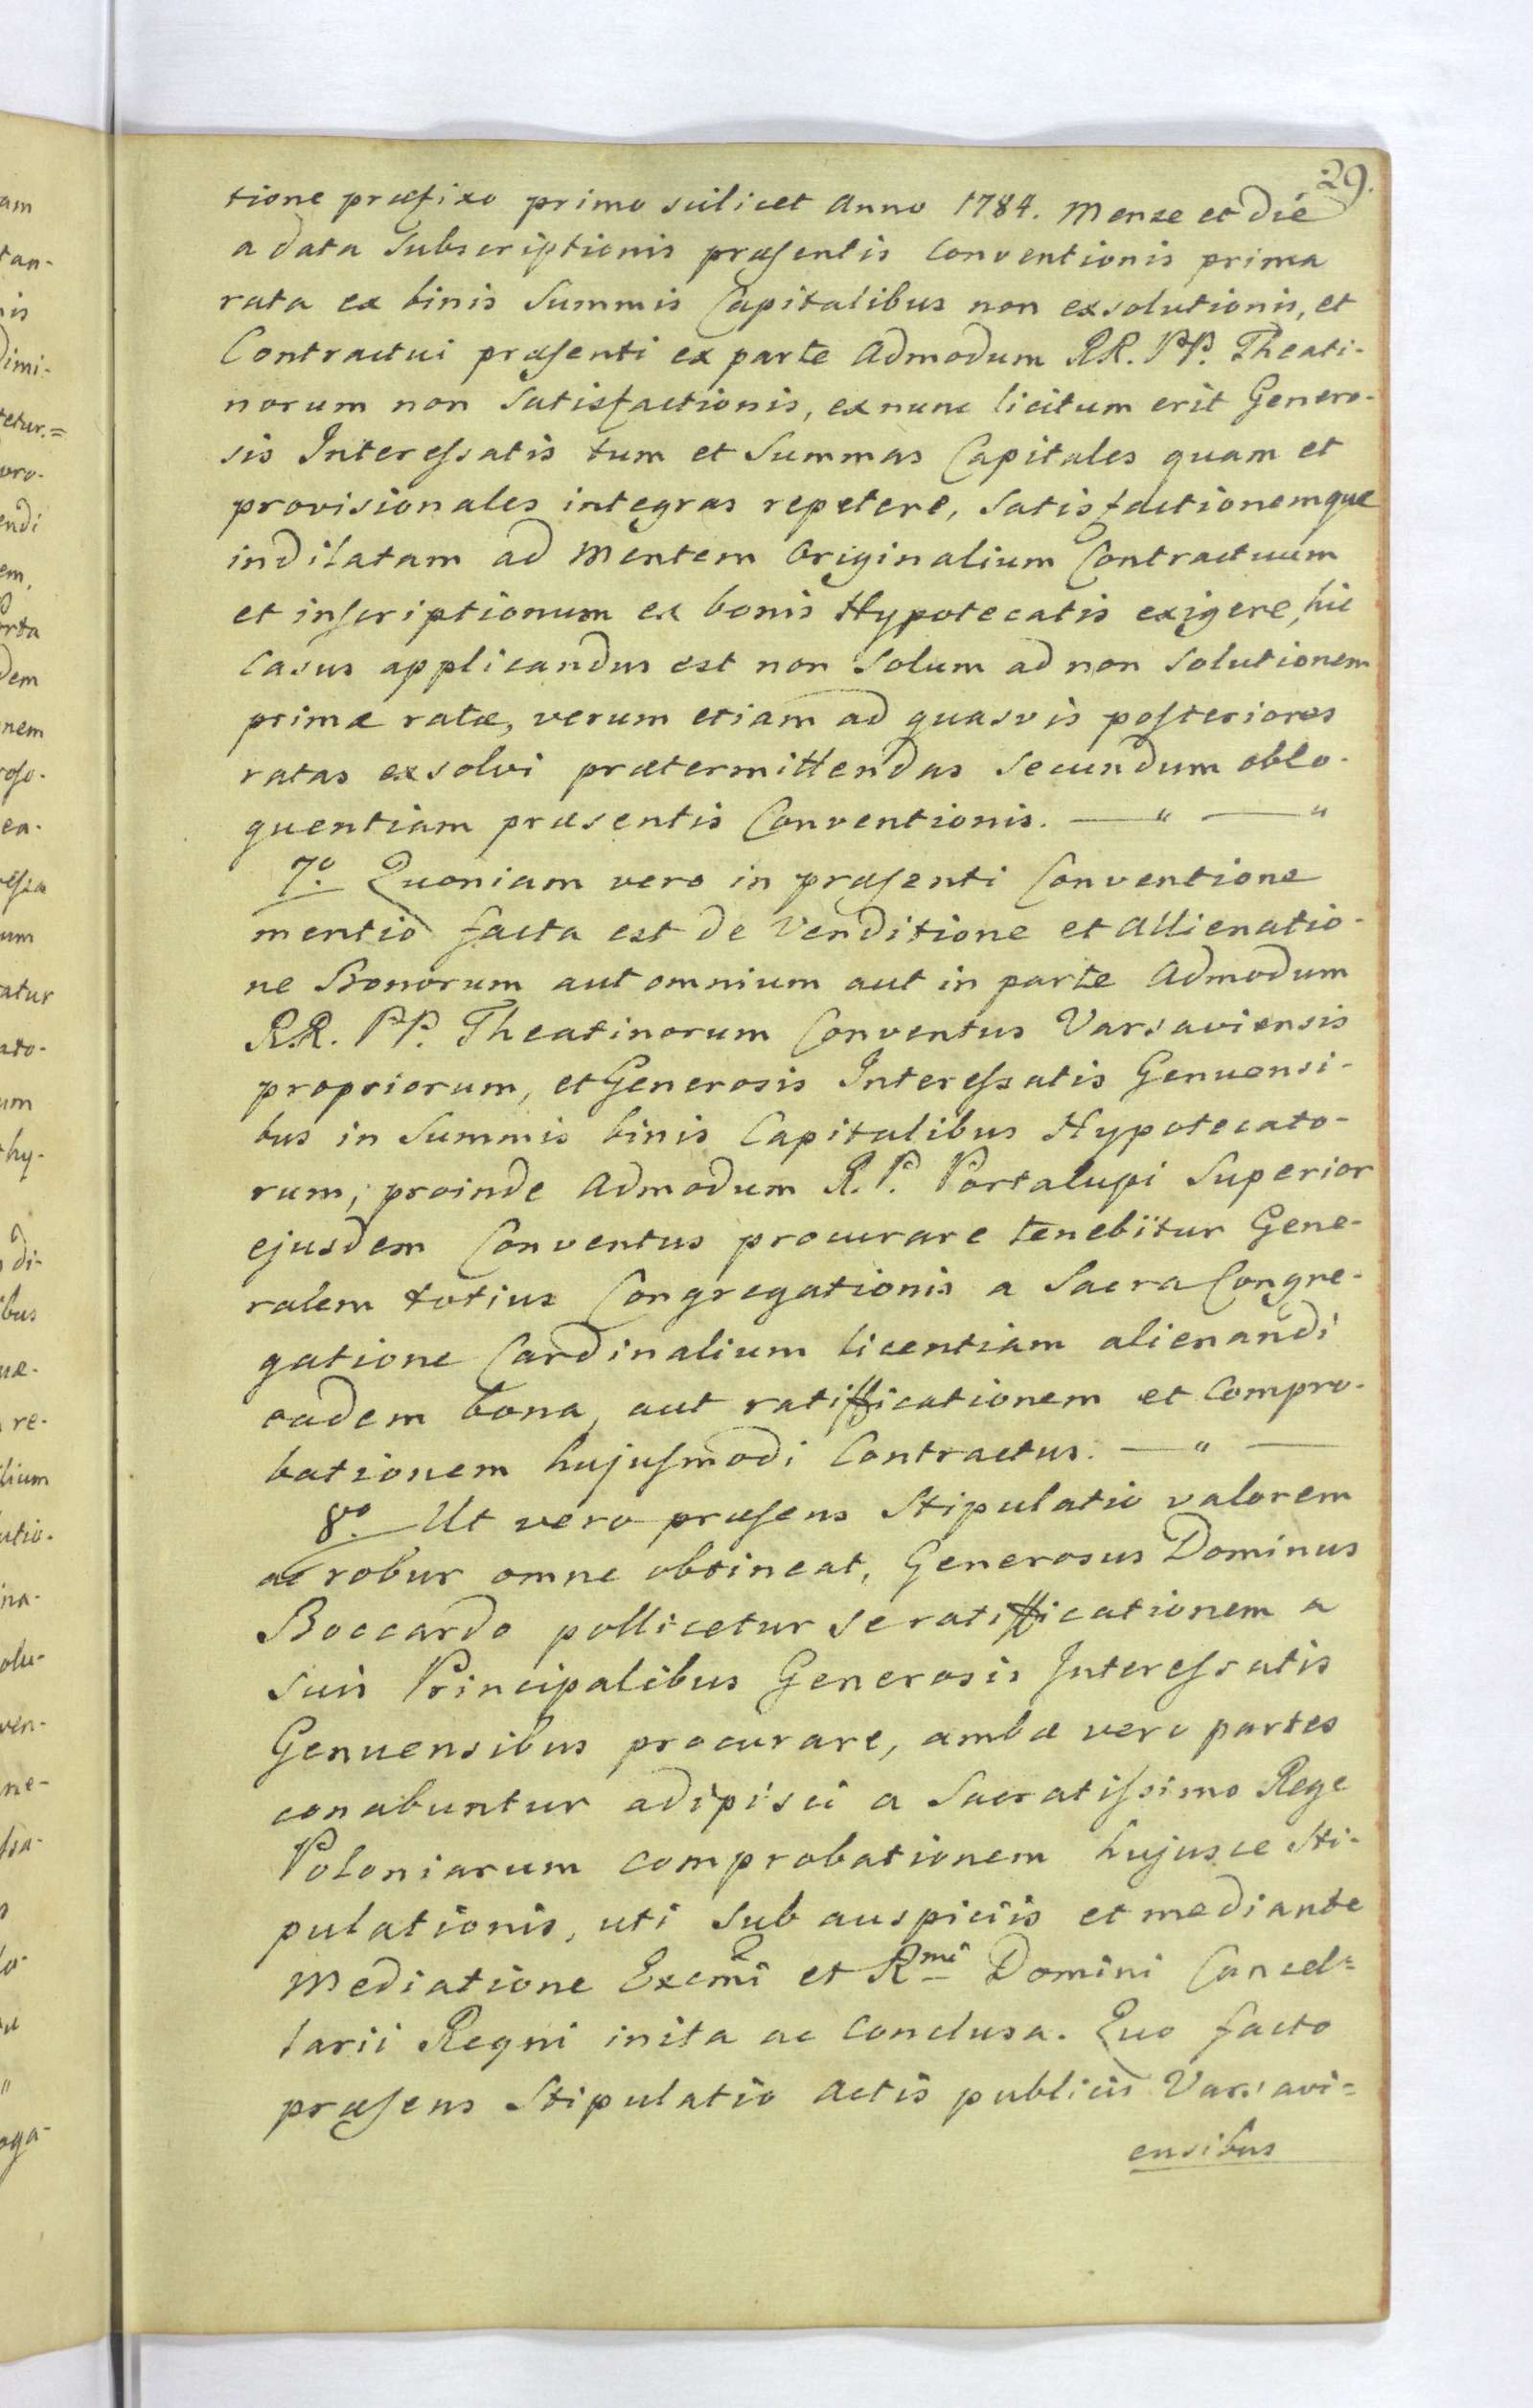 29.
tione præfixo primo scilicet Anno 1784. Mense et Die
a data Subscriptionis præsentis Conventionis prima
rata ex binis Summis Capitalibus non exsolutionis, et
Contractui præsenti ex parte Admodum RR. PP. Theati-
norum non Satisfactionis, ex nunc licitum erit Genero-
sis Interessatis tum et Summas Capitales quam et
provisionales integras repetere, Satisfactionemque
indilatam ad Mentem Originalium Contractuum
et inscriptionum ex bonis Hypotecatis exigere, hic
Casus applicandus est non Solum ad non Solutionem
primæ ratæ, verum etiam ad quasvis posteriores
ratas exsolvi prætermittendas Secundum oblo-
quentiam præsentis Conventionis. — " — "
7º. Quoniam vero in præsenti Conventione
mentio facta est de Venditione et Allienatio-
ne Bonorum aut omnium aut in parte Admodum
R.R. PP. Theatinorum Conventus Varsaviensis
propriorum, et Generosis Interessatis Genuensi-
bus in Summis binis Capitalibus Hypotecato-
rum; proinde Admodum R.P. Portalupi Superior
ejusdem Conventus procurare tenebitur Gene-
ralem totius Congregationis a Sacra Congre-
gatione Cardinalium licentiam alienandi
eadem bona, aut ratifficationem et Compro-
bationem hujusmodi Contractus. — " —
8º. Ut vero præsens Stipulatio valorem
ac robur omne obtineat, Generosus Dominus
Boccardo pollicetur se ratifficationem a
suis Principalibus Generosis Interessatis
Genuensibus procurare, ambæ vero partes
conabuntur adipisci a Sacratissimo Rege
Poloniarum comprobationem hujusce Sti-
pulationis, uti Sub auspiciis et mediante
Mediatione Excmi et Rmi Domini Cancel=
larii Regni inita ac Conclusa. Quo facto
præsens Stipulatio Actis publicis Varsavi=
ensibus
am
tan-
is
Dimi-
tetur.=
pro-
endi
em,
dem
nem
ea-
um
atur
ato-
um
hy-
di-
ibus
re-
lium
utio-
ina-
olu-
ven-
ne-
oga-